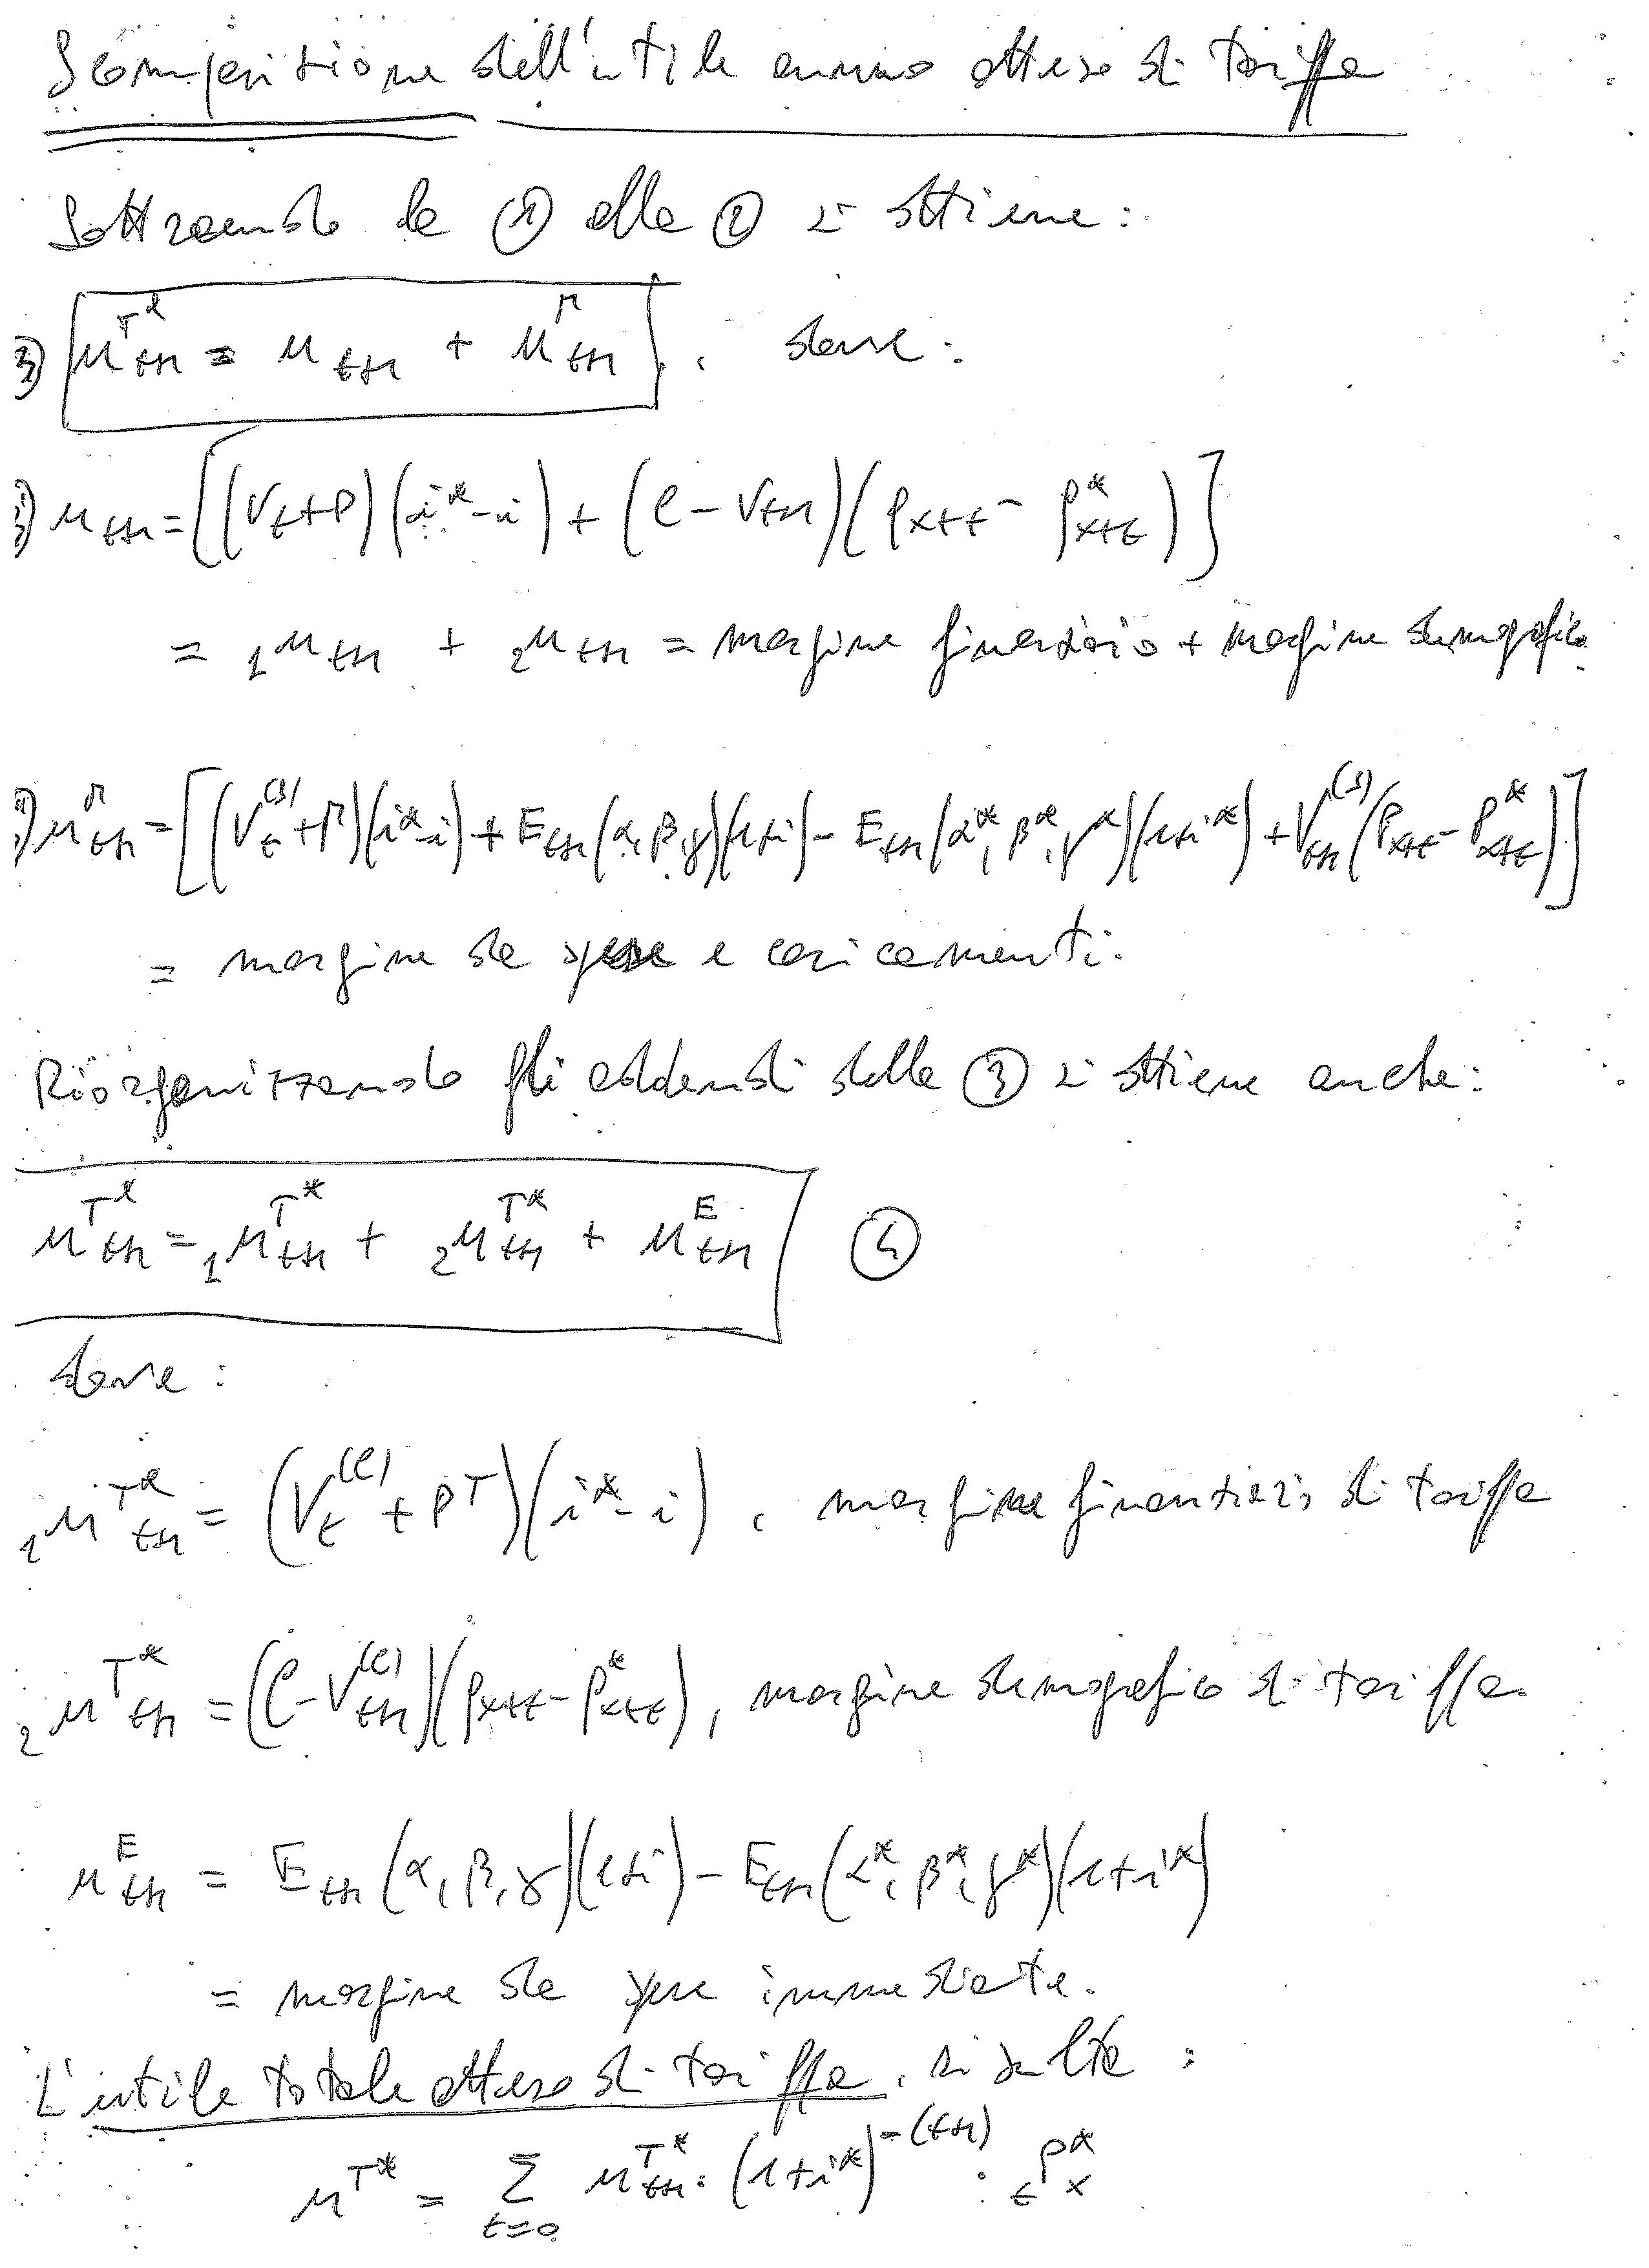 Scomposizione dell'utile annuo atteso di tariffa
Sottraendo la ① alla ② si ottiene:
3) u^{T*}_{t+1} = u_{t+1} + u^{Γ}_{t+1}, dove:
i) u_{t+1} = [(V_t+P)(i*-i) + (C-V_{t+1})(q_{x+t} - q*_{x+t})]
= ₁u_{t+1} + ₂u_{t+1} = margine finanziario + margine demografico
ii) u^{Γ}_{t+1} = [(V_t^{(s)}+Γ)(i*-i) + E_{t+1}(α,β,γ)(1+i) - E_{t+1}(α*,β*,γ*)(1+i*) + V^{(s)}_{t+1}(p_{x+t} - p*_{x+t})]
= margine da spese e caricamenti.
Riorganizzando gli addendi della ③ si ottiene anche:
u^{T*}_{t+1} = ₁u^{T*}_{t+1} + ₂u^{T*}_{t+1} + u^{E}_{t+1} ④
dove:
₁u^{T*}_{t+1} = (V_t^{(c)} + P^T)(i*-i), margine finanziario di tariffa
₂u^{T*}_{t+1} = (C-V^{(c)}_{t+1})(q_{x+t} - q*_{x+t}), margine demografico di tariffa.
u^{E}_{t+1} = E_{t+1}(α,β,γ)(1+i) - E_{t+1}(α*,β*,γ*)(1+i*)
= margine da spese immediate.
L'utile totale atteso di tariffa, risulta:
u^{T*} = Σ_{t=0} u^{T*}_{t+1} · (1+i*)^{-(t+1)} · _tp*_x